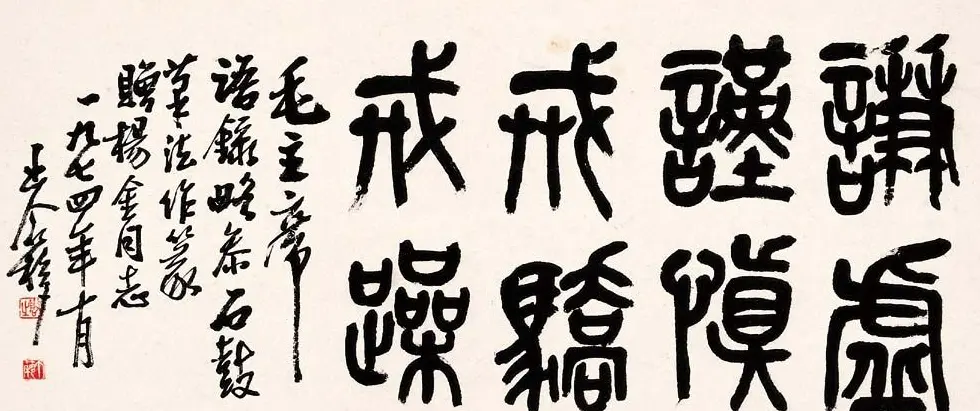 謙虛
謹慎
戒驕
戒躁
毛主席
語錄略參石鼓
筆法作篆
贈楊金同志
一九七四年十月
王个簃